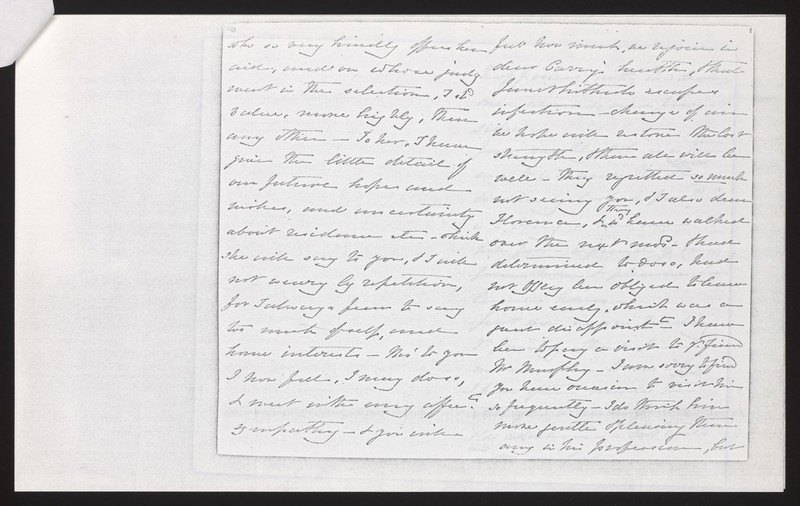 who so very kindly offers her
aid, and on whose judg
ment in the selection, I sd
value, more highly, than
any other - To her, I have
given the little detail of
our future hopes and
wishes, and uncertainty
about residence etc - which
she will say to you, & I will
not weary by repetition,
for I always fear to say
too much of self, and
home interests - tho' to you
I now feel, I may do so,
& meet with any affect
sympathy - & you will
but how much we rejoice in
dear Carry's health, & that
Janet hitherto escapes
infection - change of air
we hope will restore the lost
strength, & then all will be
well - They regretted so much
not seeing you, & I also dear
Florence, & they wd have walked
over the next mg - & had
determined to do so, had
not they been obliged to leave
home early, which was a
great disappointt - I have
been to pay a visit to yr friend
Mr Murphy - I am sorry to find
you have occasion to visit him
so frequently - I do think him
more gentle & pleasing than
any in his profession, but